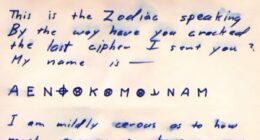 This is the Zodiac speaking
By the way have you cracked
the last cipher I sent you ?
My name is —
A E N ⌖ ⊛ K ⊛ M ⊛ ⅃ N A M
I am mildly cerous as to how